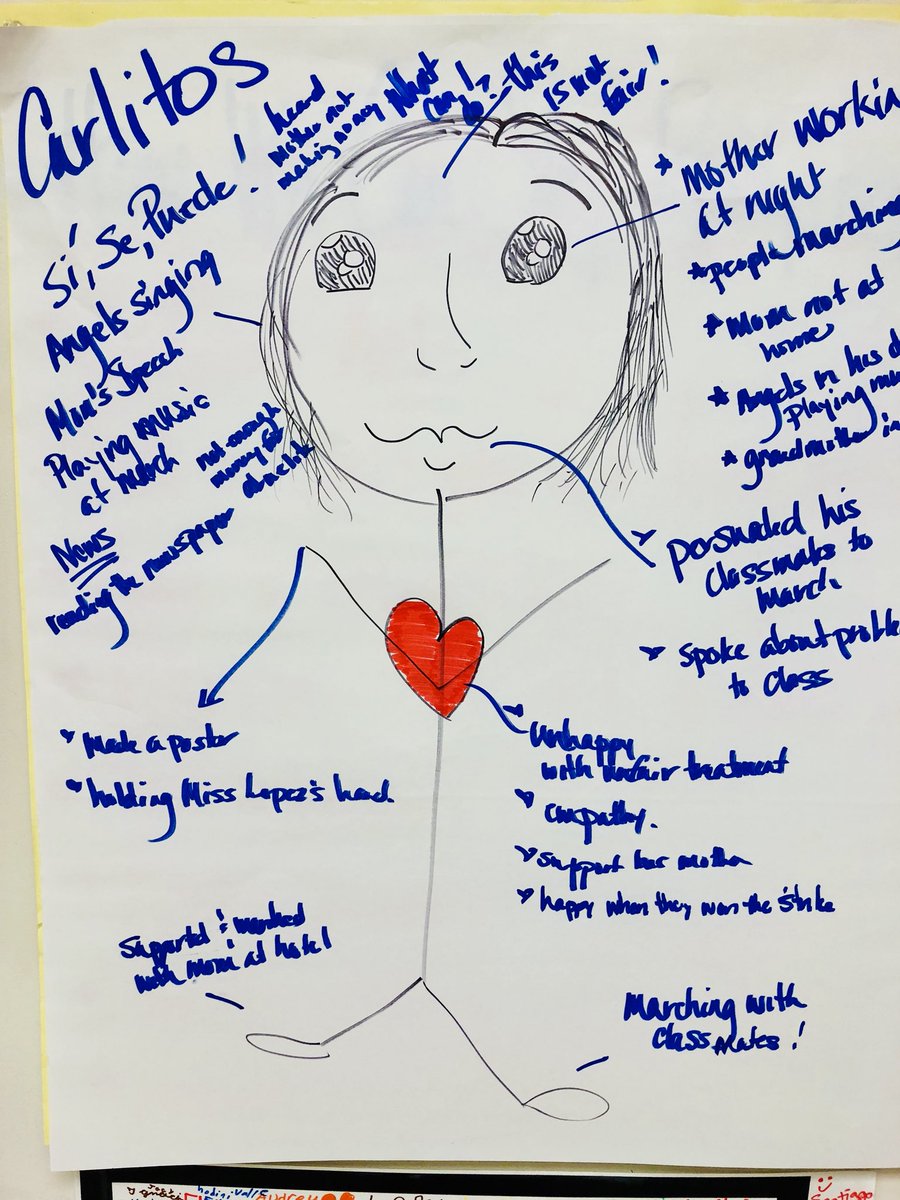 Carlitos
Sí, Se, Puede!
heard
Mother not
making money
What
can I
do - this
is not
fair!
Angels singing
Mom's Speech
Playing music
at march
not enough
money for
News
reading the newspaper
* Mother Workin
at night
* people marching
* Mom not at
home
* Angels in his d
Playing mu
* grandmother in
persuaded his
classmates to
March
spoke about proble
to class
Made a poster
holding Miss Lopez's hand.
unhappy
with unfair treatment
empathy.
support his mother
happy when they won the strike
Supported & marched
with Mom at hotel
Marching with
classmates!
Santiago